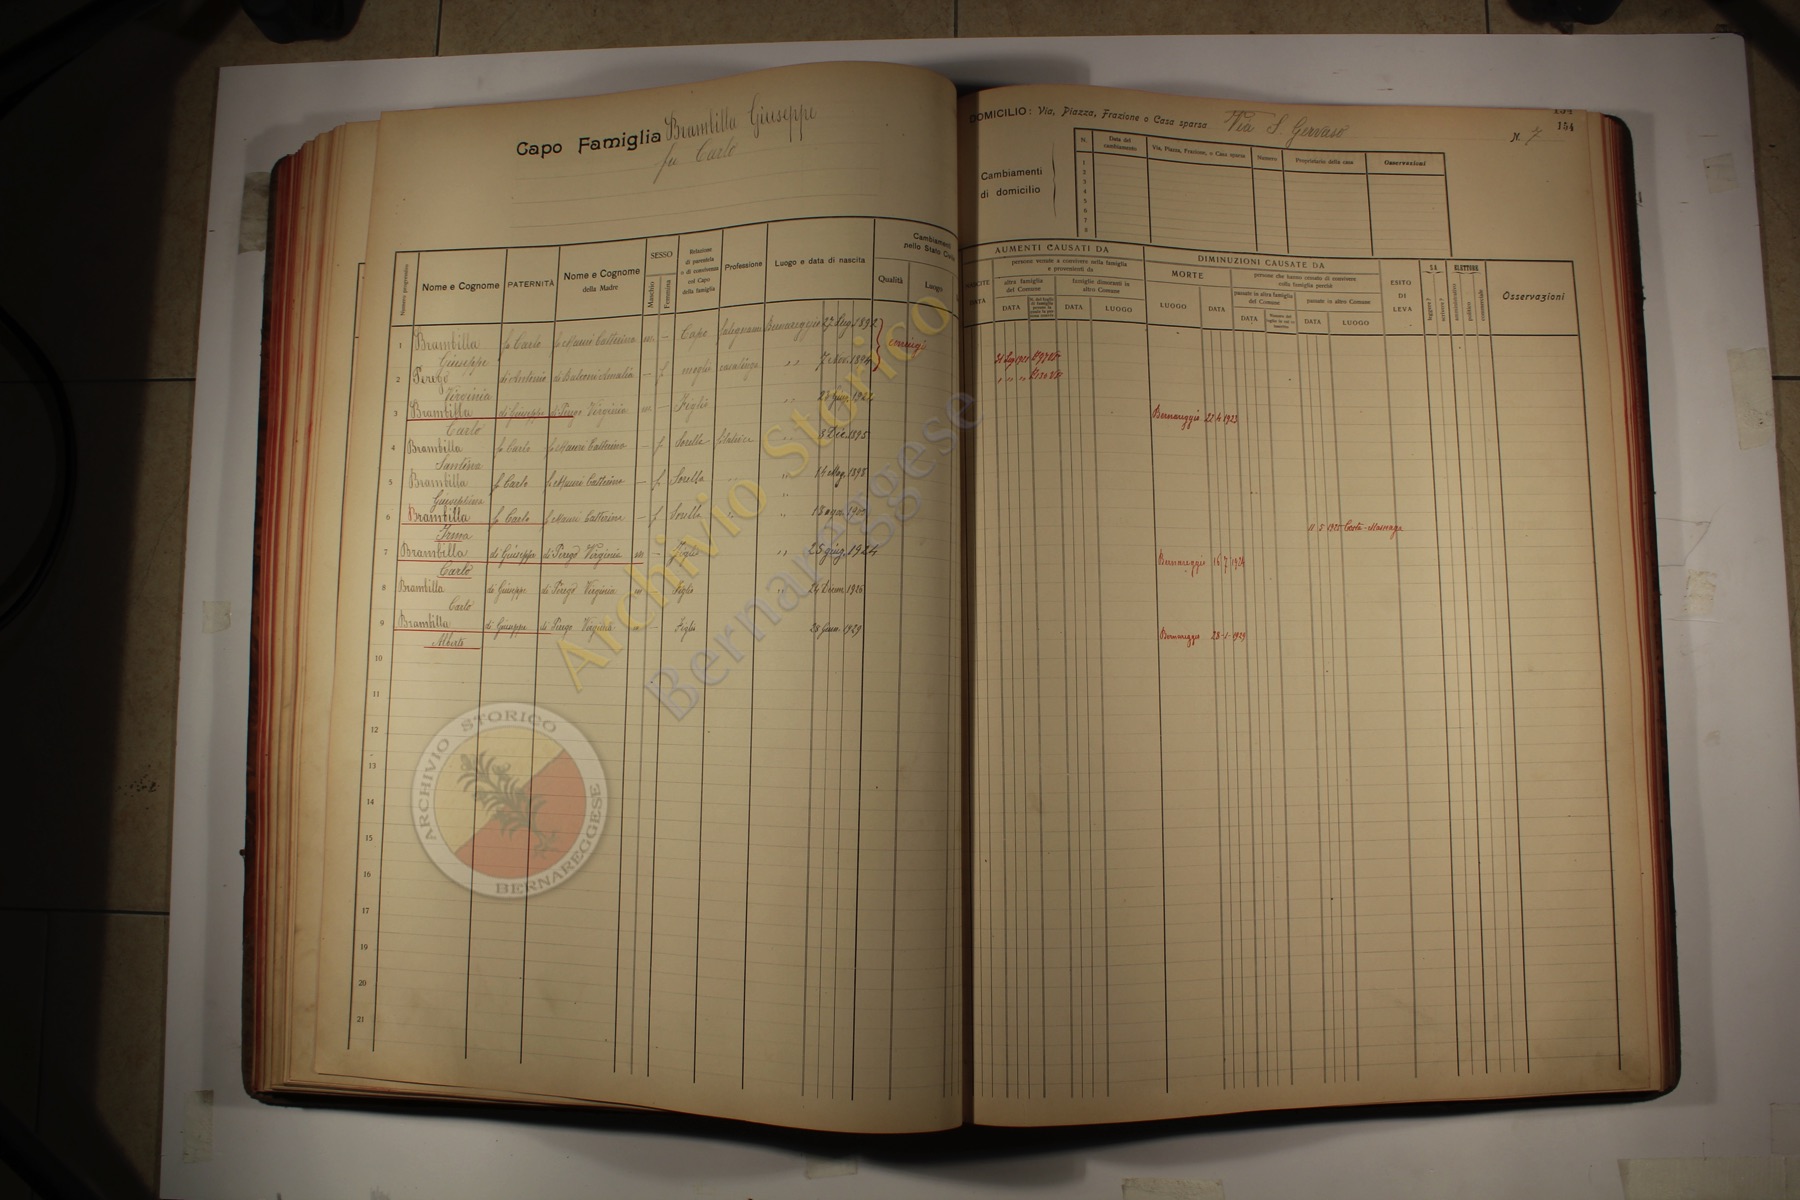 Capo Famiglia Brambilla Giuseppe
fu Carlo
DOMICILIO: Via, Piazza, Frazione o Casa sparsa Via S. Gervaso N. 7 154
Cambiamenti di domicilio
N. Data del cambiamento Via, Piazza, Frazione, o Casa sparsa Numero Proprietario della casa Osservazioni
1
2
3
4
5
6
7
8
Numero progressivo Nome e Cognome PATERNITÀ Nome e Cognome della Madre SESSO Maschio Femmina Relazione di parentela o di convivenza col Capo della famiglia Professione Luogo e data di nascita Cambiamenti nello Stato Civile Qualità Luogo
AUMENTI CAUSATI DA
persone venute a convivere nella famiglia e provenienti da
altra famiglia del Comune famiglie dimoranti in altro Comune
DATA DATA LUOGO
DIMINUZIONI CAUSATE DA
MORTE persone che hanno cessato di convivere nella famiglia perchè
passate in altra famiglia del Comune passate in altro Comune
LUOGO DATA DATA DATA LUOGO
ESITO DI LEVA
ELETTORE
amministrativo politico commerciale
Osservazioni
1 Brambilla Giuseppe fu Carlo fu Mauri Catterina m — Capo falegname Bernareggio 27 1892 coniugi
2 Perego Virginia di Antonio di Balconi Amalia — f moglie casalinga " 7 Nov. 1894
3 Brambilla Carlo di Giuseppe di Perego Virginia m — Figlio " 1922 Bernareggio 22 4 1923
4 Brambilla Santina fu Carlo fu Mauri Catterina — f Sorella " 8 Dic. 1895
5 Brambilla Giuseppina fu Carlo fu Mauri Catterina — f Sorella " " 14 Mag. 1898
6 Brambilla Irma fu Carlo fu Mauri Catterina — f Sorella " " 11 5 1925 Costa-Masnaga
7 Brambilla Carlo di Giuseppe di Perego Virginia m — Figlio " 25 giug. 1924 Bernareggio 16 7 1924
8 Brambilla Carlo di Giuseppe di Perego Virginia m Figlio " 24 Dicem 1926
9 Brambilla Alberto di Giuseppe di Perego Virginia m — Figlio 28 Genn. 1929 Bernareggio 28-1-1929
10
11
12
13
14
15
16
17
19
20
21
Archivio Storico
Bernareggese
ARCHIVIO STORICO
BERNAREGGESE